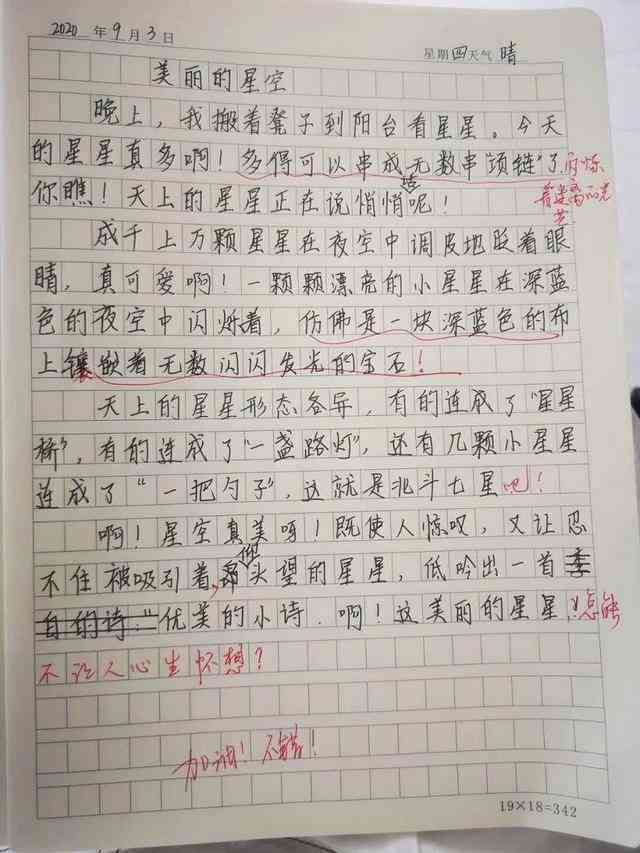 2020 年 9 月 3 日
星期 四 天气 晴
美丽的星空
晚上，我搬着凳子到阳台看星星。今天
的星星真多啊！多得可以串成无数串"项链"了，闪烁
你瞧！天上的星星正在说悄悄话呢！
着
成千上万颗星星在夜空中调皮地眨着眼
睛，真可爱啊！一颗颗漂亮的小星星在深蓝
色的夜空中闪烁着，仿佛是一块深蓝色的布
上镶嵌着无数闪闪发光的宝石！
天上的星星形态各异，有的连成了"星星
桥"，有的连成了"一盏路灯"，还有几颗小星星
连成了"一把勺子"，这就是北斗七星吧！
啊！星空真美呀！既使人惊叹，又让忍
不住被吸引着，仰头望的星星，低吟出一首
自的诗."优美的小诗．啊！这美丽的星星，怎能
不让人心生怀想？
加油！不错！
19×18=342